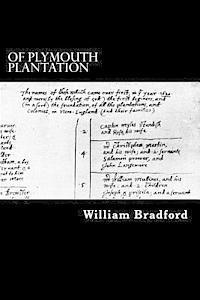 OF PLYMOUTH
PLANTATION
The names of those which came over first, in ye year 1620
and were by the blesing of God the first beginers, and
(in a sort) the foundation, of all the plantations, and
Colonies, in New-England (and their families)
2
Captin Myles Standish
and Rose, his wife
4
mr Christopher Martin,
and his wife; and 2 servants,
Salamon prower, and
John Langemore
mr William Mullines, and his
wife; and 2 children
Joseph & priscila; and a servant
William Bradford